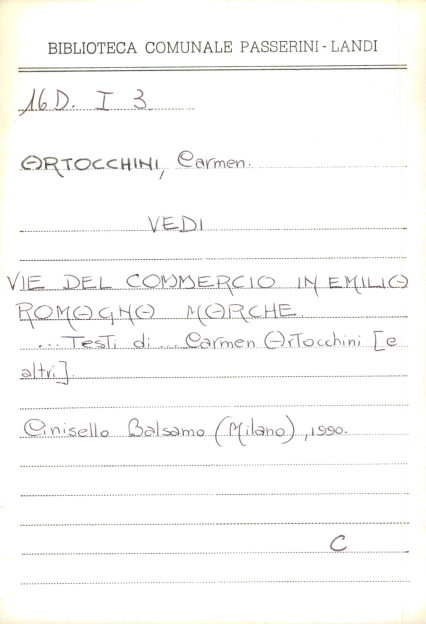 BIBLIOTECA COMUNALE PASSERINI - LANDI
16D. I 3
ARTOCCHINI, Carmen.
VEDI
VIE DEL COMMERCIO IN EMILIA
ROMAGNA MARCHE.
... Testi di ... Carmen Artocchini [e
altri].
Cinisello Balsamo (Milano), 1990.
C